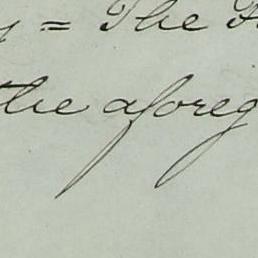 y = The
the aforeg